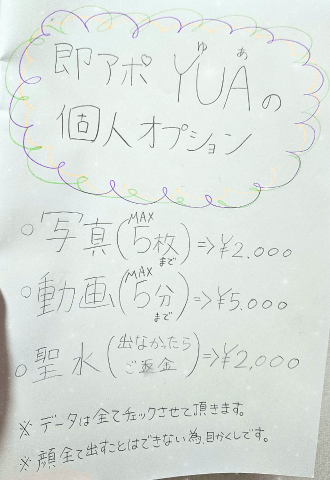 即アポ YUAの
ゆあ
個人オプション
○写真(MAX 5枚まで)=>¥2.000
○動画(MAX 5分まで)=>¥5.000
○聖水(出なかったらご返金)=>¥2,000
※データは全てチェックさせて頂きます。
※顔全て出すことはできない為、目かくしです。